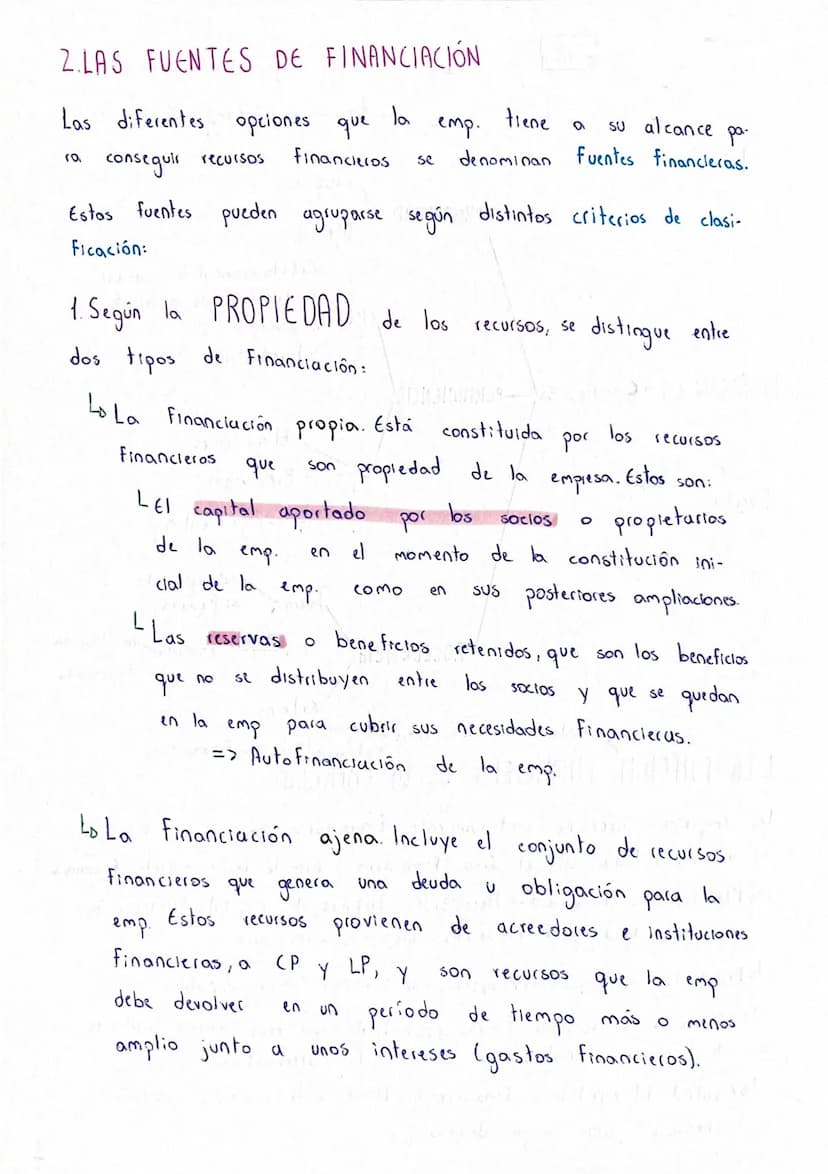 2.LAS FUENTES DE FINANCIACIÓN
Las diferentes opciones que la emp. tiene a su alcance pa-
ra conseguir recursos financieros se denominan fuentes financieras.
Estas fuentes pueden agruparse según distintos criterios de clasi-
ficación:
1. Según la PROPIEDAD de los recursos, se distingue entre
dos tipos de financiación:
↳ La financiación propia. Está constituida por los recursos
financieros que son propiedad de la empresa. Estos son:
└ El capital aportado por los socios o propietarios
de la emp. en el momento de la constitución ini-
cial de la emp. como en sus posteriores ampliaciones.
└ Las reservas o beneficios retenidos, que son los beneficios
que no se distribuyen entre los socios y que se quedan
en la emp para cubrir sus necesidades financieras.
=> Autofinanciación de la emp.
↳ La financiación ajena. Incluye el conjunto de recursos
financieros que genera una deuda u obligación para la
emp. Estos recursos provienen de acreedores e instituciones
financieras, a CP y LP, y son recursos que la emp
debe devolver en un período de tiempo más o menos
amplio junto a unos intereses (gastos financieros).